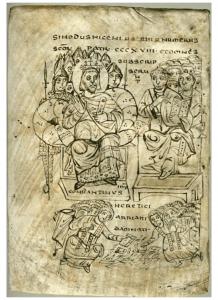 SINODUS NICENI NUMERUS
SCOR PATR CCCXVIII ET OMNES
SUBSCRIP
SERU
CONSTANTINUS
HERETICI
ARRIANI
DAMNATI